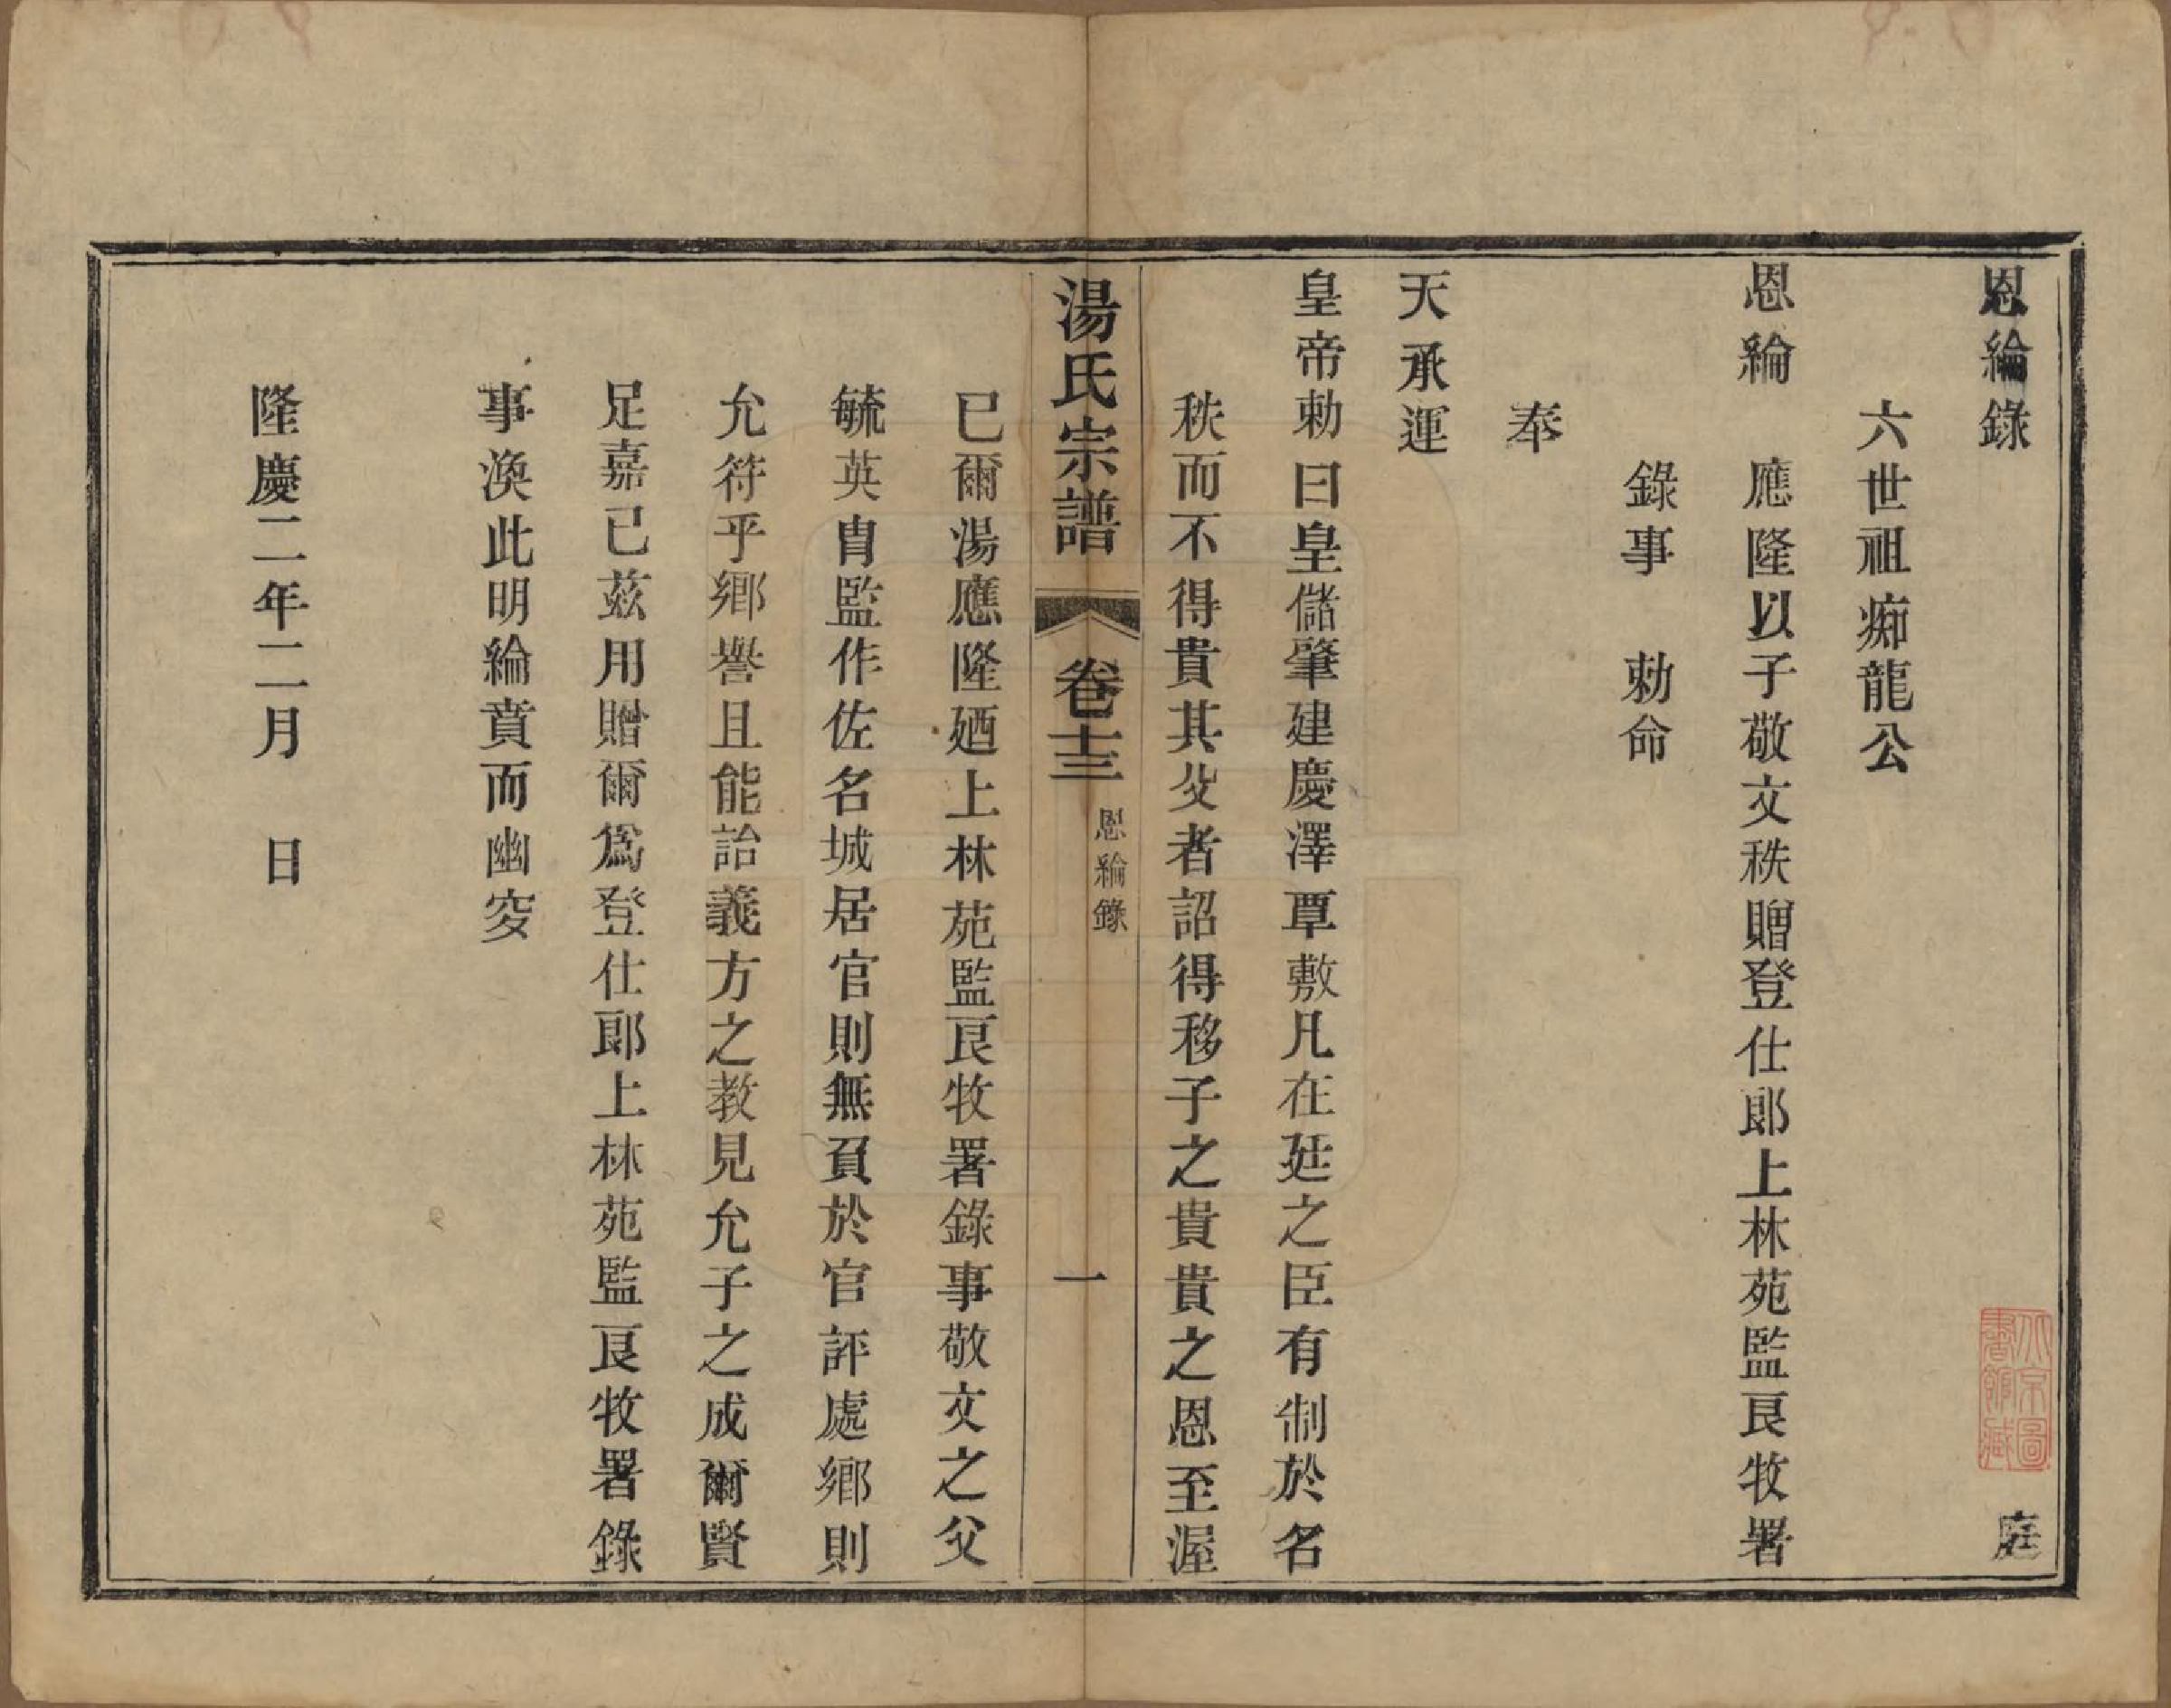 恩綸錄
庭
六世祖痴龍公
恩綸　應隆以子敬文秩贈登仕郎上林苑監良牧署
錄事　勅命
奉
天承運
皇帝勅曰皇儲肇建慶澤覃敷凡在廷之臣有制於名
秩而不得貴其父者詔得移子之貴貴之恩至渥
湯氏宗譜　卷十三　恩綸錄　一
已爾湯應隆廼上林苑監良牧署錄事敬文之父
毓英胄監作佐名城居官則無負於官評處鄉則
允符乎鄉譽且能詒義方之教見允子之成爾賢
足嘉已茲用贈爾爲登仕郎上林苑監良牧署錄
事渙此明綸賁而幽穸
隆慶二年二月　日
北京圖書館藏